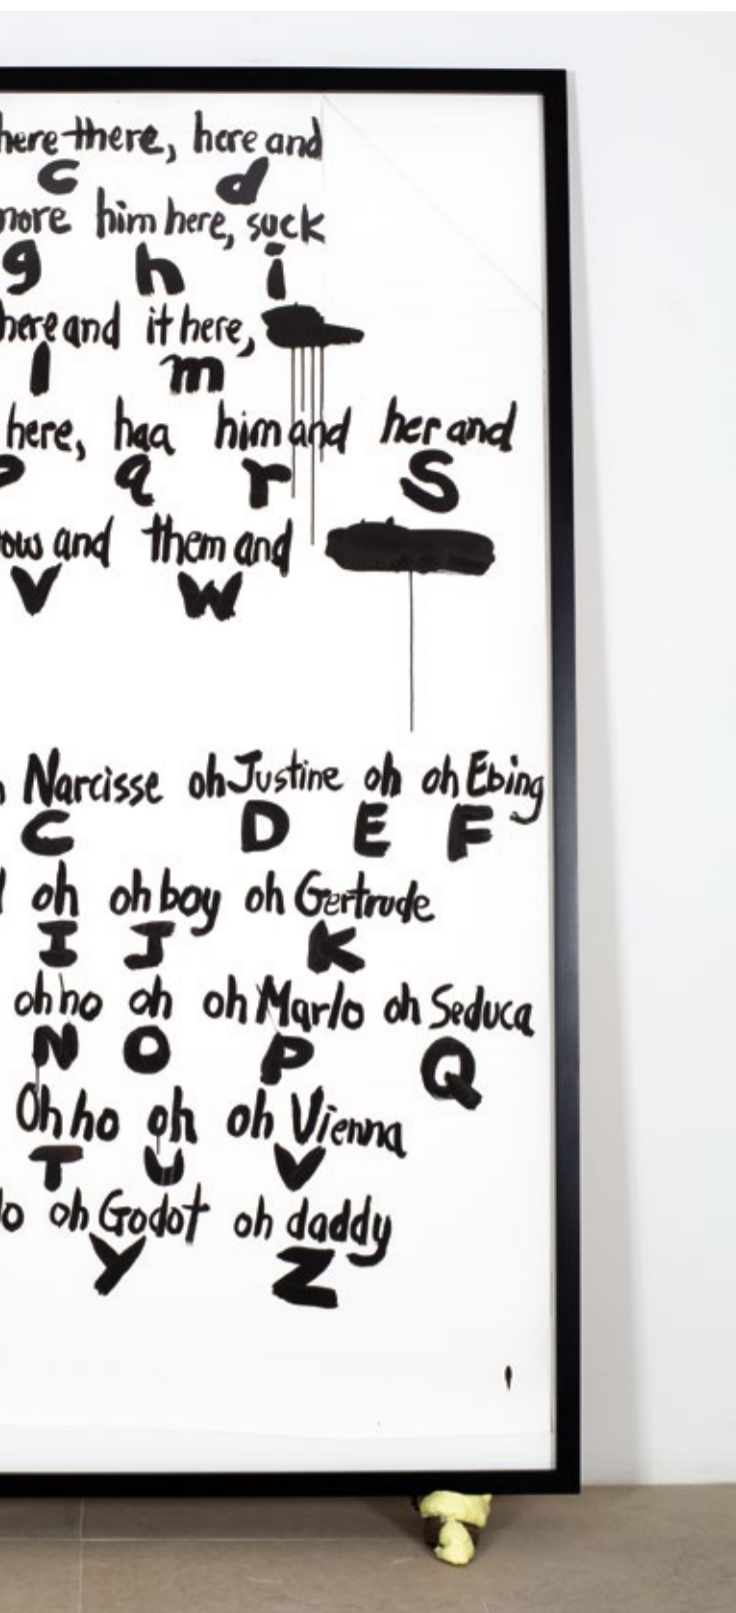 here there, here and
c d
more him here, suck
g h i
here and it here,
l m
here, haa him and her and
q r S
and them and
V W
Narcisse oh Justine oh oh Ebing
C D E F
oh oh boy oh Gertrude
I J K
oh ho oh oh Marlo oh Seduca
N O P Q
Oh ho oh oh Vienna
T U V
oh Godot oh daddy
Y Z